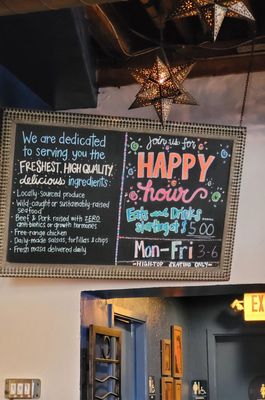 We are dedicated
to serving you the
FRESHEST, HIGH QUALITY,
delicious ingredients:
• Locally-sourced produce
• Wild-caught or sustainably-raised
seafood
• Beef & Pork raised with ZERO
antibiotics or growth hormones
• Free-range chicken
• Daily-made salsas, tortillas & chips
• Fresh masa delivered daily
Join us for
HAPPY
hour
Eats and Drinks...
starting at $5.00
Mon-Fri 3-6
-HIGHTOP SEATING ONLY-
EXI